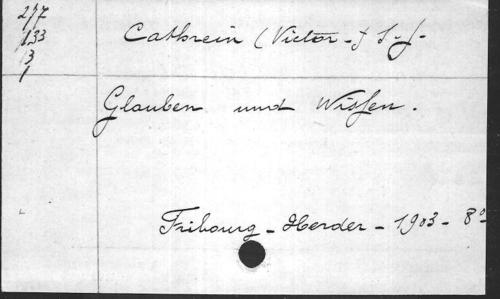 277
133
3
1
Cathrein (Victor-) S.J.
Glauben und Wissen.
Fribourg - Herder - 1903 - 8°